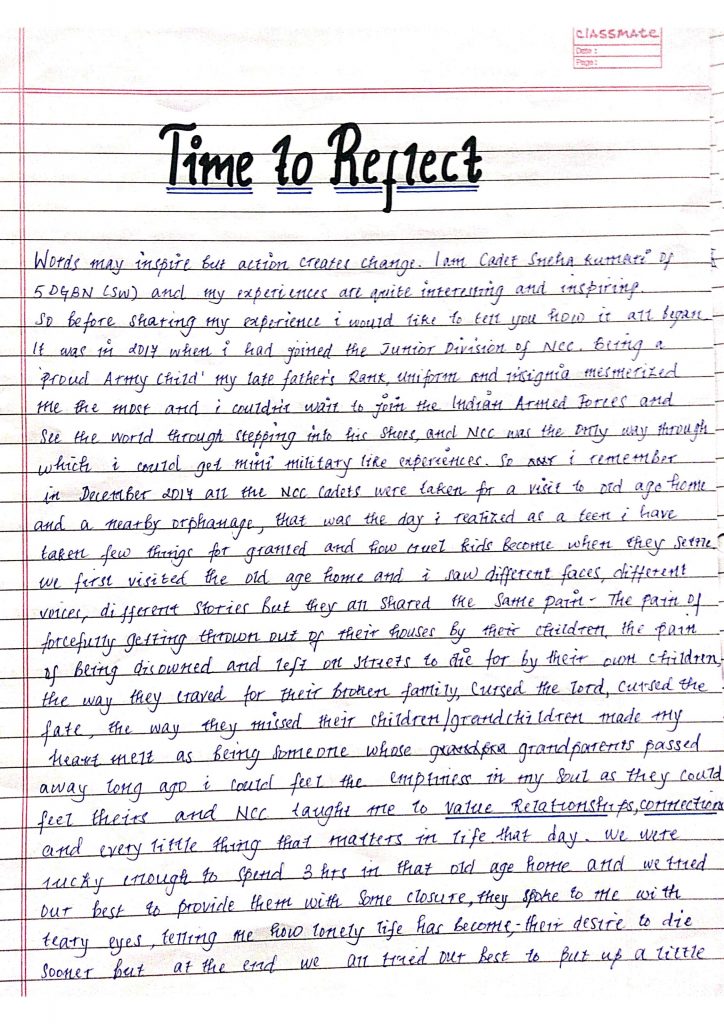 classmate
Date :
Page :
Time to Reflect
Words may inspire but action creates change. I am Cadet Sneha Kumari of
5 DGBN (SW) and my experiences are quite interesting and inspiring.
So before sharing my experience i would like to tell you how it all began
It was in 2017 when i had joined the Junior Division of NCC. Being a
'proud Army Child' my late father's Rank, Uniform and insignia mesmerized
me the most and i couldn't wait to join the Indian Armed Forces and
see the world through stepping into his shoes, and NCC was the only way through
which i could get mini military like experiences. So i remember
in December 2017 all the NCC Cadets were taken for a visit to old age home
and a nearby orphanage, that was the day i realized as a teen i have
taken few things for granted and how cruel kids become when they settle
we first visited the old age home and i saw different faces, different
voices, different stories but they all shared the same pain - The pain of
forcefully getting thrown out of their houses by their children, the pain
of being disowned and left on streets to die for by their own children,
the way they craved for their broken family, cursed the lord, cursed the
fate, the way they missed their children/grandchildren made my
heart melt as being someone whose grandparents passed
away long ago i could feel the emptiness in my soul as they could
feel theirs and NCC taught me to value Relationships, connection
and every little thing that matters in life that day. We were
lucky enough to spend 3 hrs in that old age home and we tried
our best to provide them with some closure, they spoke to me with
teary eyes, telling me how lonely life has become, their desire to die
sooner but at the end we all tried our best to put up a little